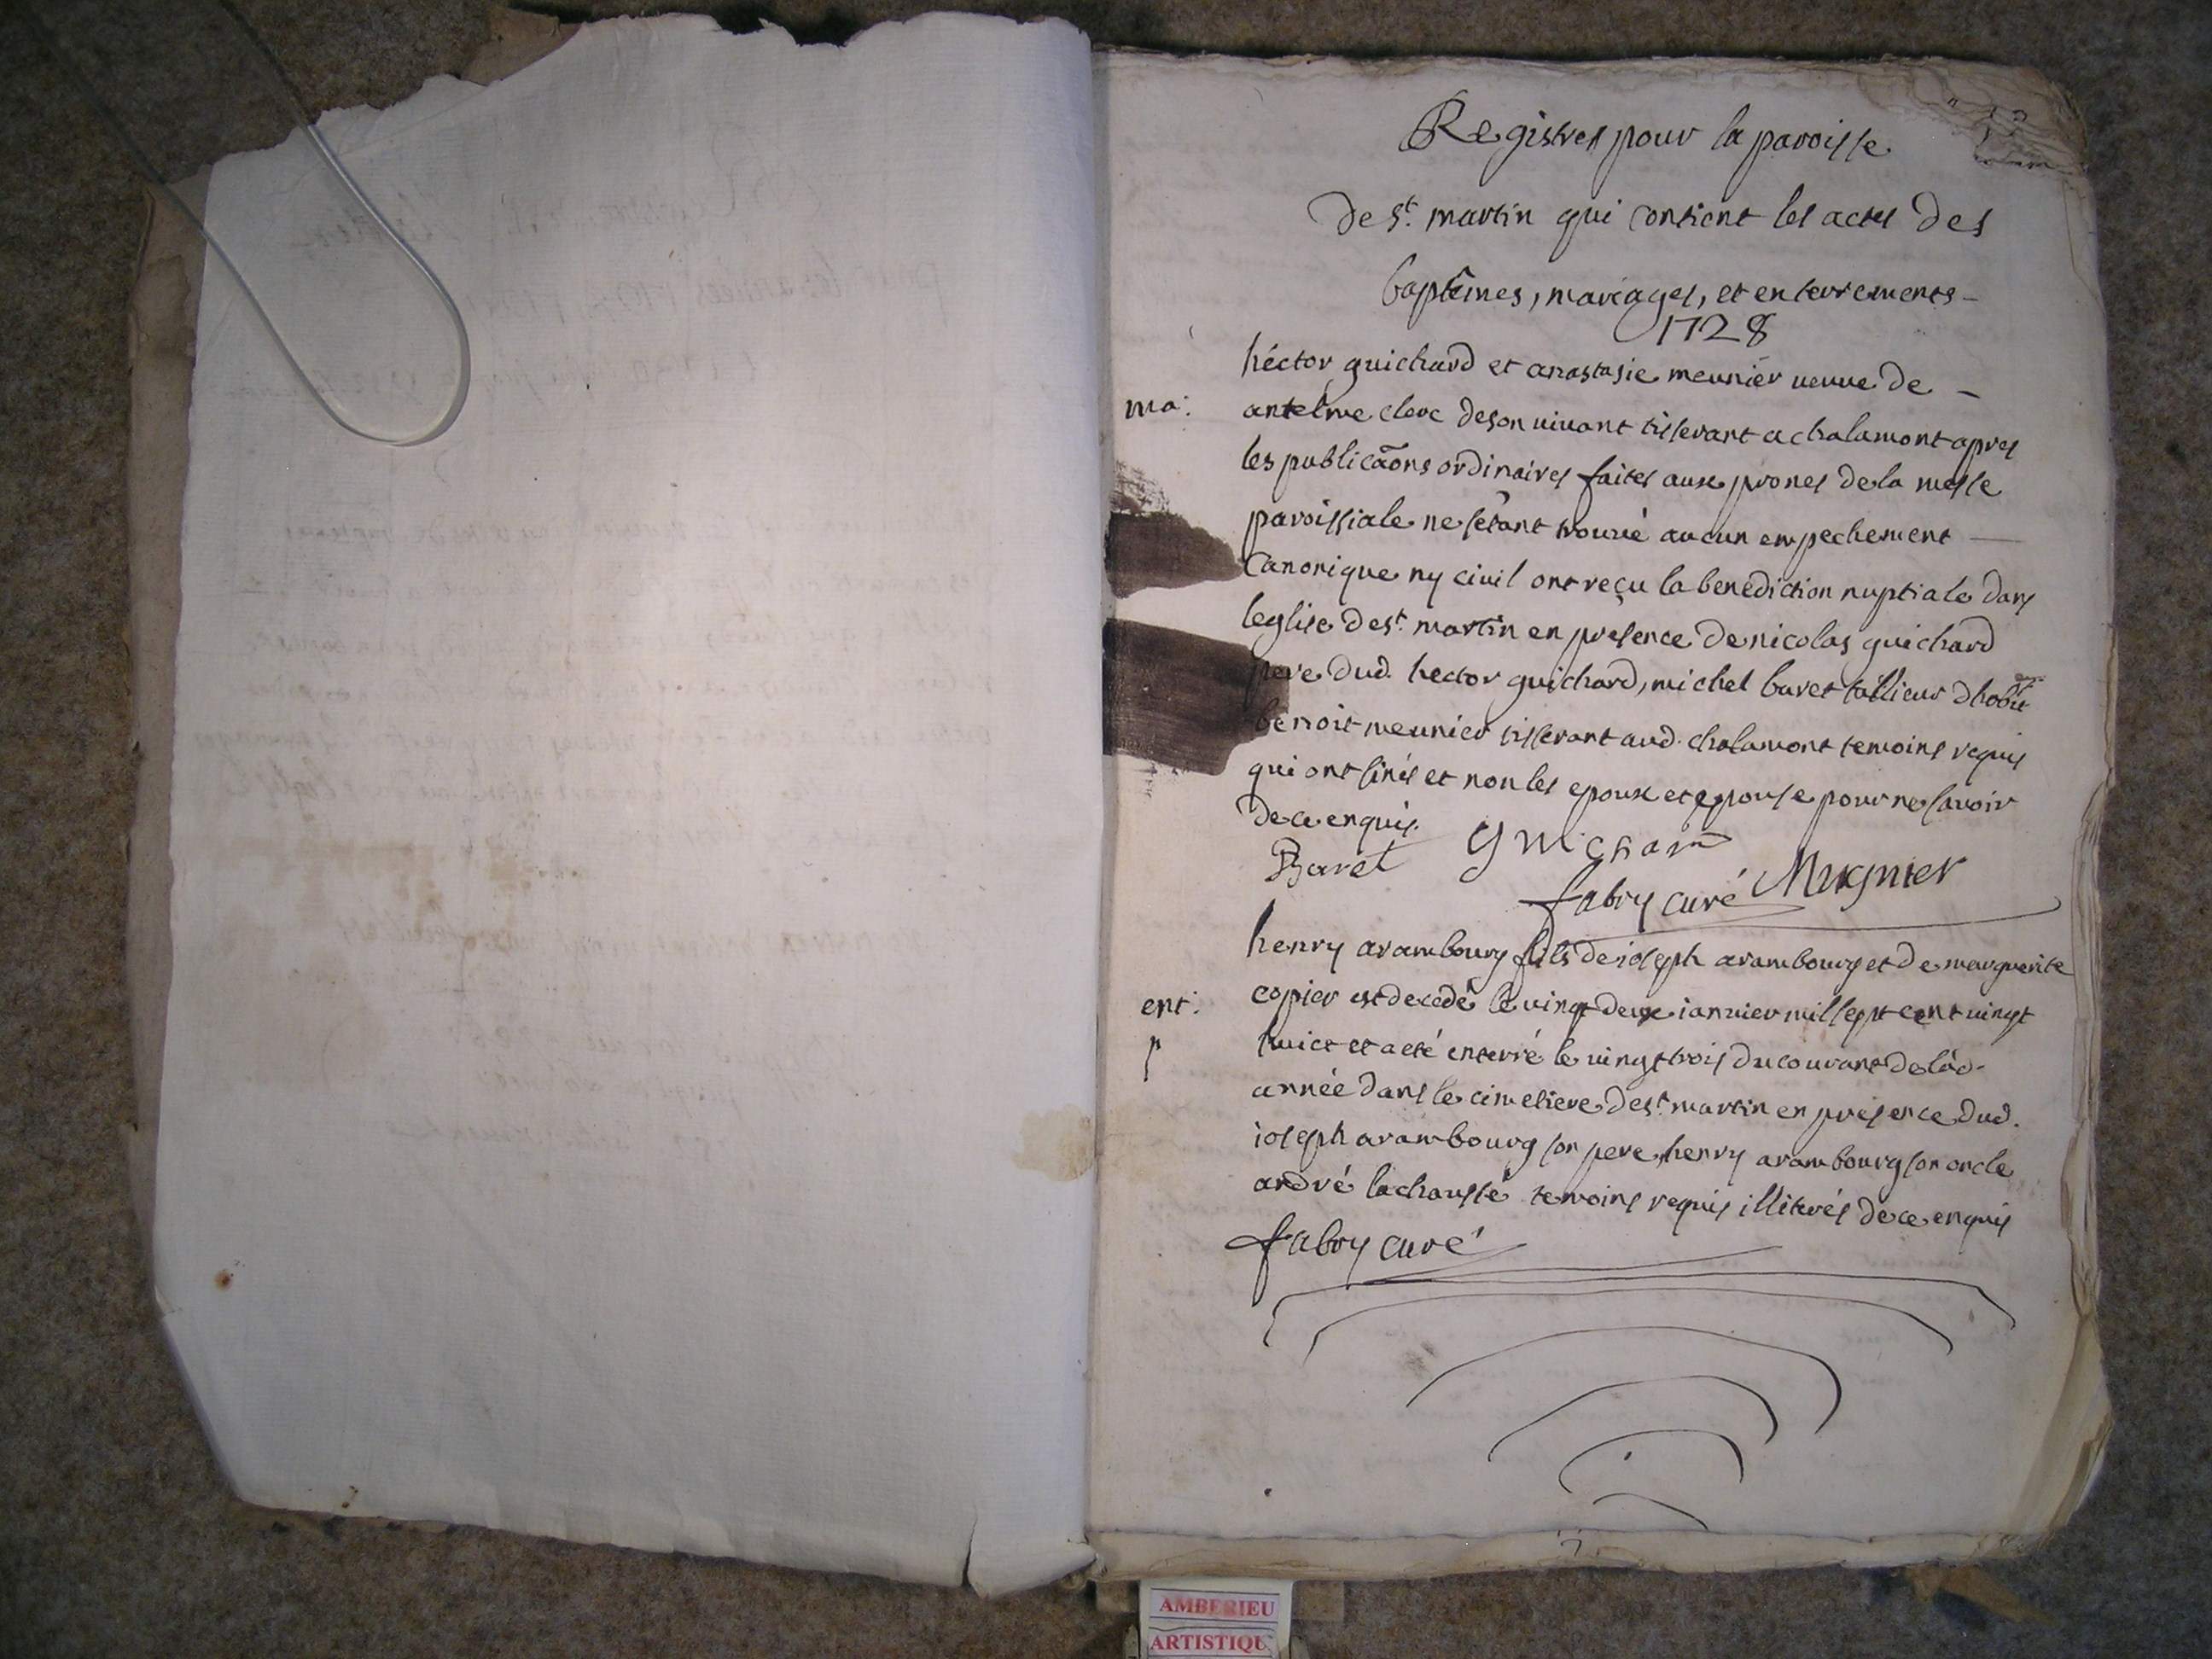 Registres pour la paroisse
de st. martin qui contient les actes des
baptêmes, mariages, et enterrements -
1728
héctor guichard et anastasie meunier veuve de -
ma: antelme clerc de son vivant tisserant a chalamont apres
les publicãons ordinaires faites aux prones de la messe
paroissiale ne sétant trouvé aucun empechement -
Canonique ny civil ont reçu la benediction nuptiale dans
leglise de st. martin en presence de nicolas guichard
pere dud. hector guichard, michel baret tallieur dhabit
benoit meunier tisserant aud. chalamont temoins requis
qui ont sinés et non les epoux et epouse pour ne savoir
de ce enquis.
Baret guichard
fabry curé Mugnier
henry arambourg fils de ioseph arambourg et de marguerite
ent: copier est decedé le vingt deux ianvier mil sept cent vingt
p huict et a eté enterré le vingt trois du courant de lad.
année dans le cimetiere de st. martin en presence dud.
ioseph arambourg son pere, henry arambourg son oncle
andré lachaussé temoins requis illiterés de ce enquis
fabry curé
AMBERIEU
ARTISTIQU